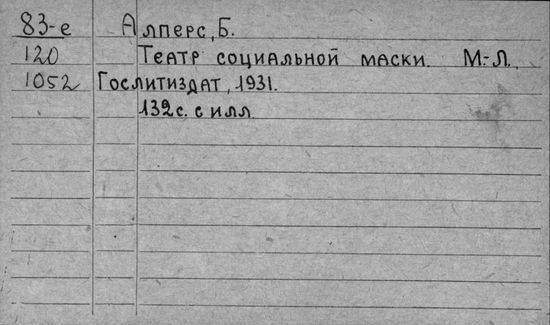 83-е Алперс, Б.
120 Театр социальной маски. М.-Л.,
1052 Гослитиздат, 1931.
132 с. с илл.